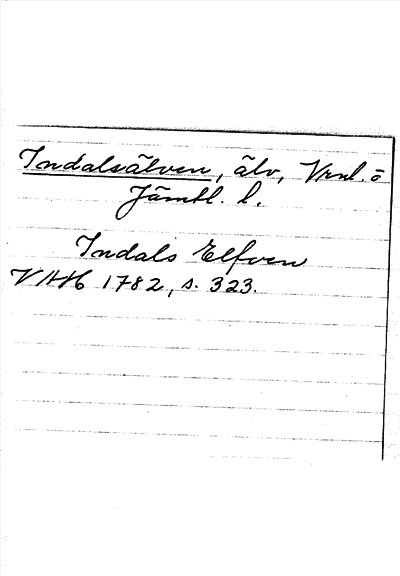 Indalsälven, älv, Vrnl. o
Jämtl. l.
Indals Elfven
VAH 1782, s. 323.